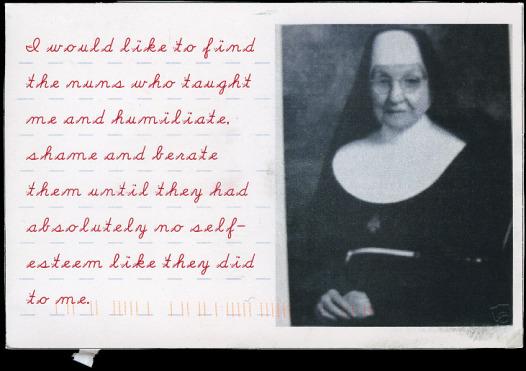 I would like to find
the nuns who taught
me and humiliate,
shame and berate
them until they had
absolutely no self-
esteem like they did
to me.